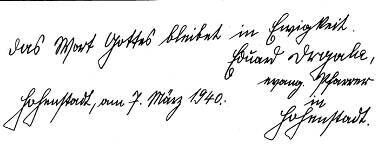 das Wort Gottes bleibet in Ewigkeit.
Eduard Drgala,
evang. Pfarrer
in
Hohenstadt, am 7. März 1940.
Hohenstadt.